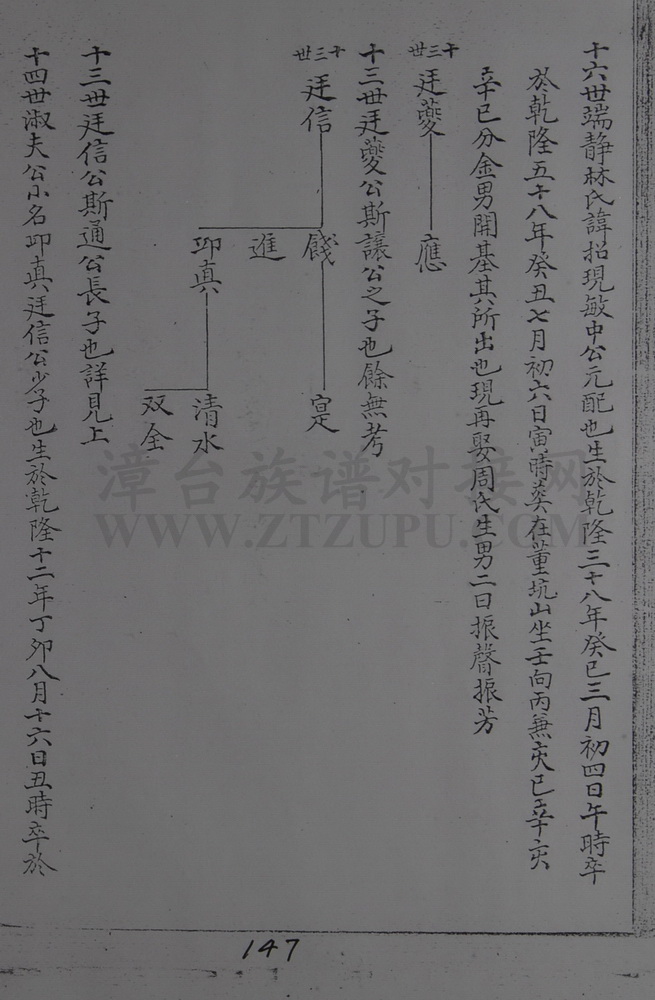 十六世端静林氏諱招現敏中公元配也生於乾隆三十八年癸巳三月初四日午時卒
於乾隆五十八年癸丑七月初六日寅時葬在董坑山坐壬向丙兼亥巳辛亥
辛巳分金男開基其所出也現再娶周氏生男二曰振聲振芳
十三世
廷夔
應
十三世廷夔公斯讓公之子也餘無考
十三世
廷信
餞
進
卬真
寔
清水
双全
十三世廷信公斯通公長子也詳見上
十四世淑夫公小名卬真廷信公少子也生於乾隆十二年丁卯八月十六日丑時卒於
漳台族谱对接网
WWW.ZTZUPU.COM
147